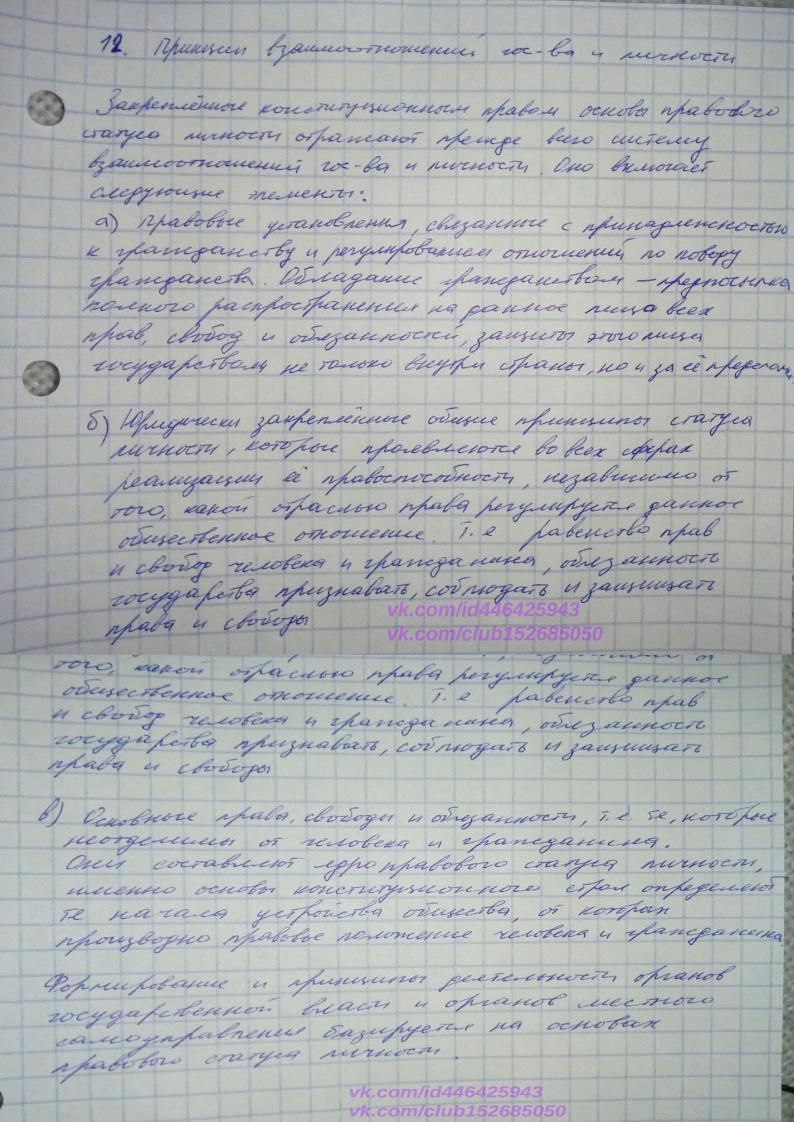 12. Принцип взаимоотношений гос-ва и личности
Закреплённые конституционным правом основы правового
статуса личности отражают прежде всего систему
взаимоотношений гос-ва и личности. Оно включает
следующие элементы:
а) Правовые установления, связанные с принадлежностью
к гражданству и регулированием отношений по поводу
гражданства. Обладание гражданством – предпосылка
полного распространения на данное лицо всех
прав, свобод и обязанностей, защиты этого лица
государством не только внутри страны, но и за её пределами.
б) Юридически закреплённые общие принципы статуса
личности, которые проявляются во всех сферах
реализации её правоспособности, независимо от
того, какой отраслью права регулируется данное
общественное отношение. Т.е равенство прав
и свобод человека и гражданина, обязанность
государства признавать, соблюдать и защищать
права и свободы
vk.com/id446425943
vk.com/club152685050
того, какой отраслью права регулируется данное
общественное отношение. Т.е равенство прав
и свобод человека и гражданина, обязанность
государства признавать, соблюдать и защищать
права и свободы
в) Основные права, свободы и обязанности, т.е. те, которые
неотделимы от человека и гражданина.
Они составляют ядро правового статуса личности,
именно основы конституционного строя определяют
те начала устройства общества, от которых
производно правовое положение человека и гражданина.
Формирование и принципы деятельности органов
государственной власти и органов местного
самоуправления базируется на основах
правового статуса личности.
vk.com/id446425943
vk.com/club152685050